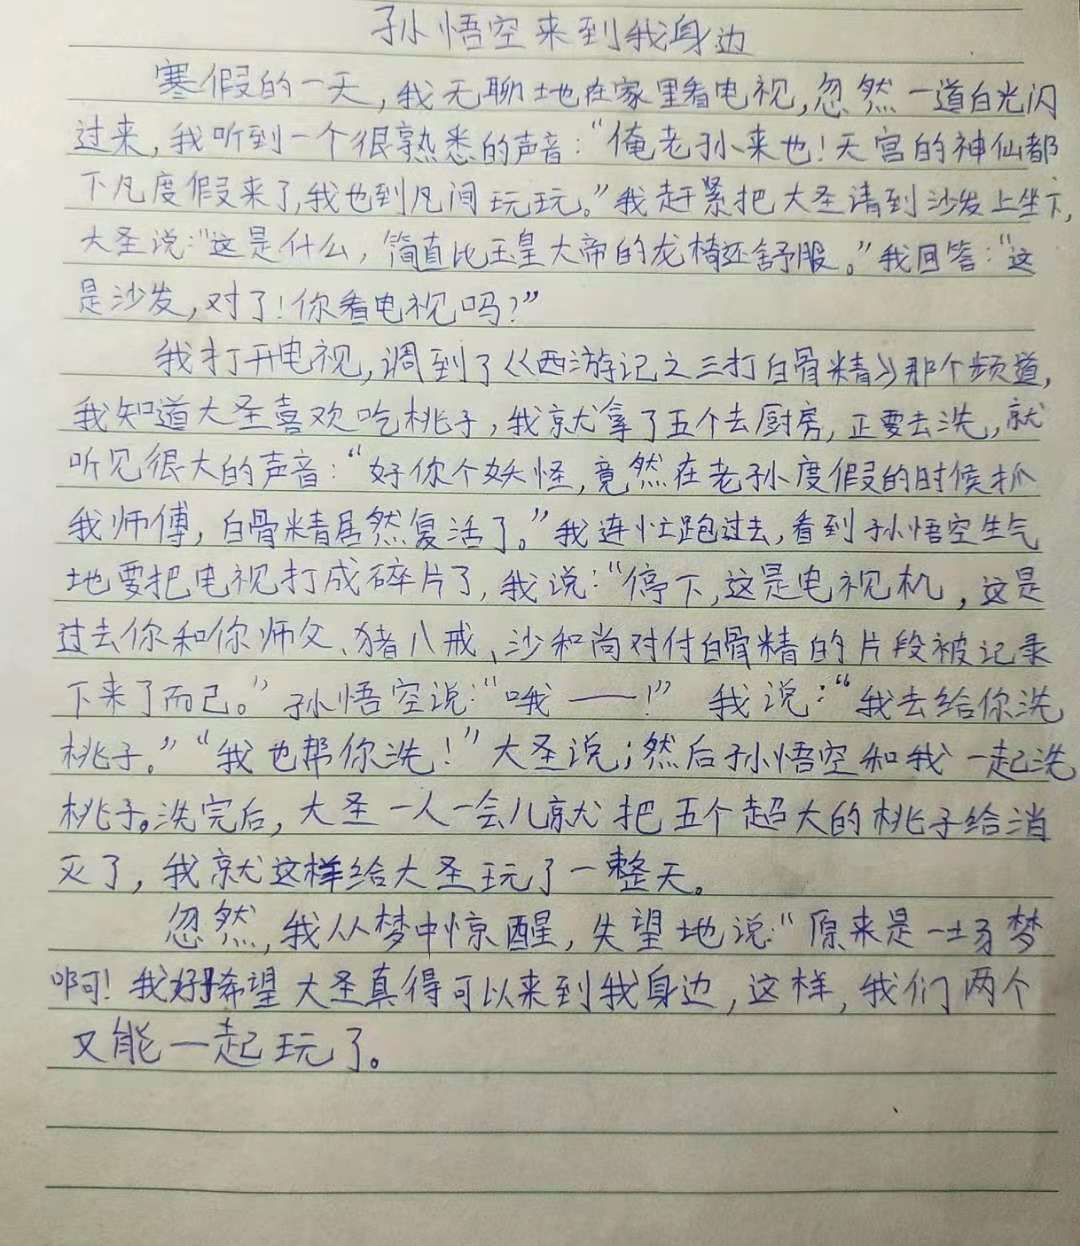 孙悟空来到我身边
寒假的一天,我无聊地在家里看电视,忽然一道白光闪
过来,我听到一个很熟悉的声音:“俺老孙来也!天宫的神仙都
下凡度假来了,我也到凡间玩玩。”我赶紧把大圣请到沙发上坐下,
大圣说:“这是什么,简直比玉皇大帝的龙椅还舒服。”我回答:“这
是沙发,对了!你看电视吗?”
我打开电视,调到了《西游记之三打白骨精》那个频道,
我知道大圣喜欢吃桃子,我就拿了五个去厨房,正要去洗,就
听见很大的声音:“好你个妖怪,竟然在老孙度假的时候抓
我师傅,白骨精居然复活了。”我连忙跑过去,看到孙悟空生气
地要把电视打成碎片了,我说:“停下,这是电视机,这是
过去你和你师父、猪八戒、沙和尚对付白骨精的片段被记录
下来了而已。”孙悟空说:“哦——!”我说:“我去给你洗
桃子。”“我也帮你洗!”大圣说;然后孙悟空和我一起洗
桃子。洗完后,大圣一人一会儿就把五个超大的桃子给消
灭了,我就这样给大圣玩了一整天。
忽然,我从梦中惊醒,失望地说:“原来是一场梦
啊!我好希望大圣真得可以来到我身边,这样,我们两个
又能一起玩了。